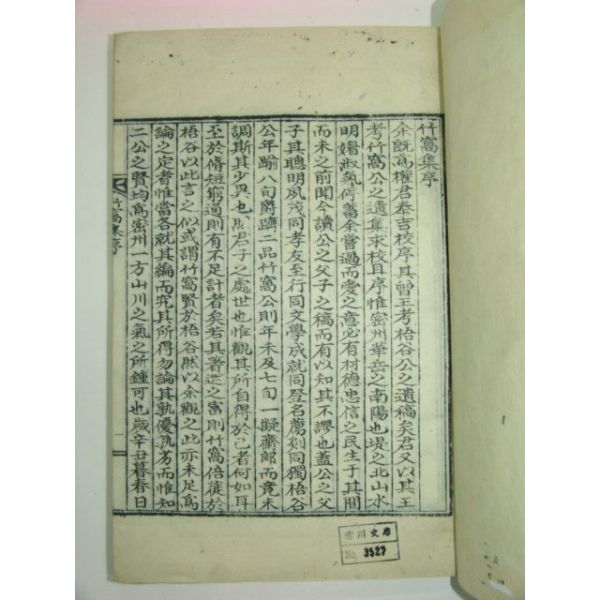 竹窩集序
余旣爲權君泰吉校序其曾王考梧谷公之遺稿矣君又以其王
考竹窩公之遺集求校且序惟密州華岳之南陽也堤之北山水
明媚淑氣停蓄余嘗過而愛之意必有材德忠信之民生于其間
而未之前聞今讀公之父子之稿而有以知其不謬也蓋公之父
子其聰明夙茂同孝友至行同文學成就同登名薦刻同獨梧谷
公年踰八旬爵躋二品竹窩公則年未及七旬一擬齋郎而竟未
調斯其少異也然君子之處世也惟觀其所自得於己者何如耳
至於脩短窮通則有不足計者矣若其著述之富則竹窩倍蓰於
梧谷以此言之似或謂竹窩賢於梧谷然以余觀之此亦未足爲
論之定者惟當各就其編而究其所得勿論其孰優孰劣而惟知
二公之賢均爲密州一方山川之氣之所鍾可也歲辛丑暮春日
竹窩集序
一
文庫
No. 3527